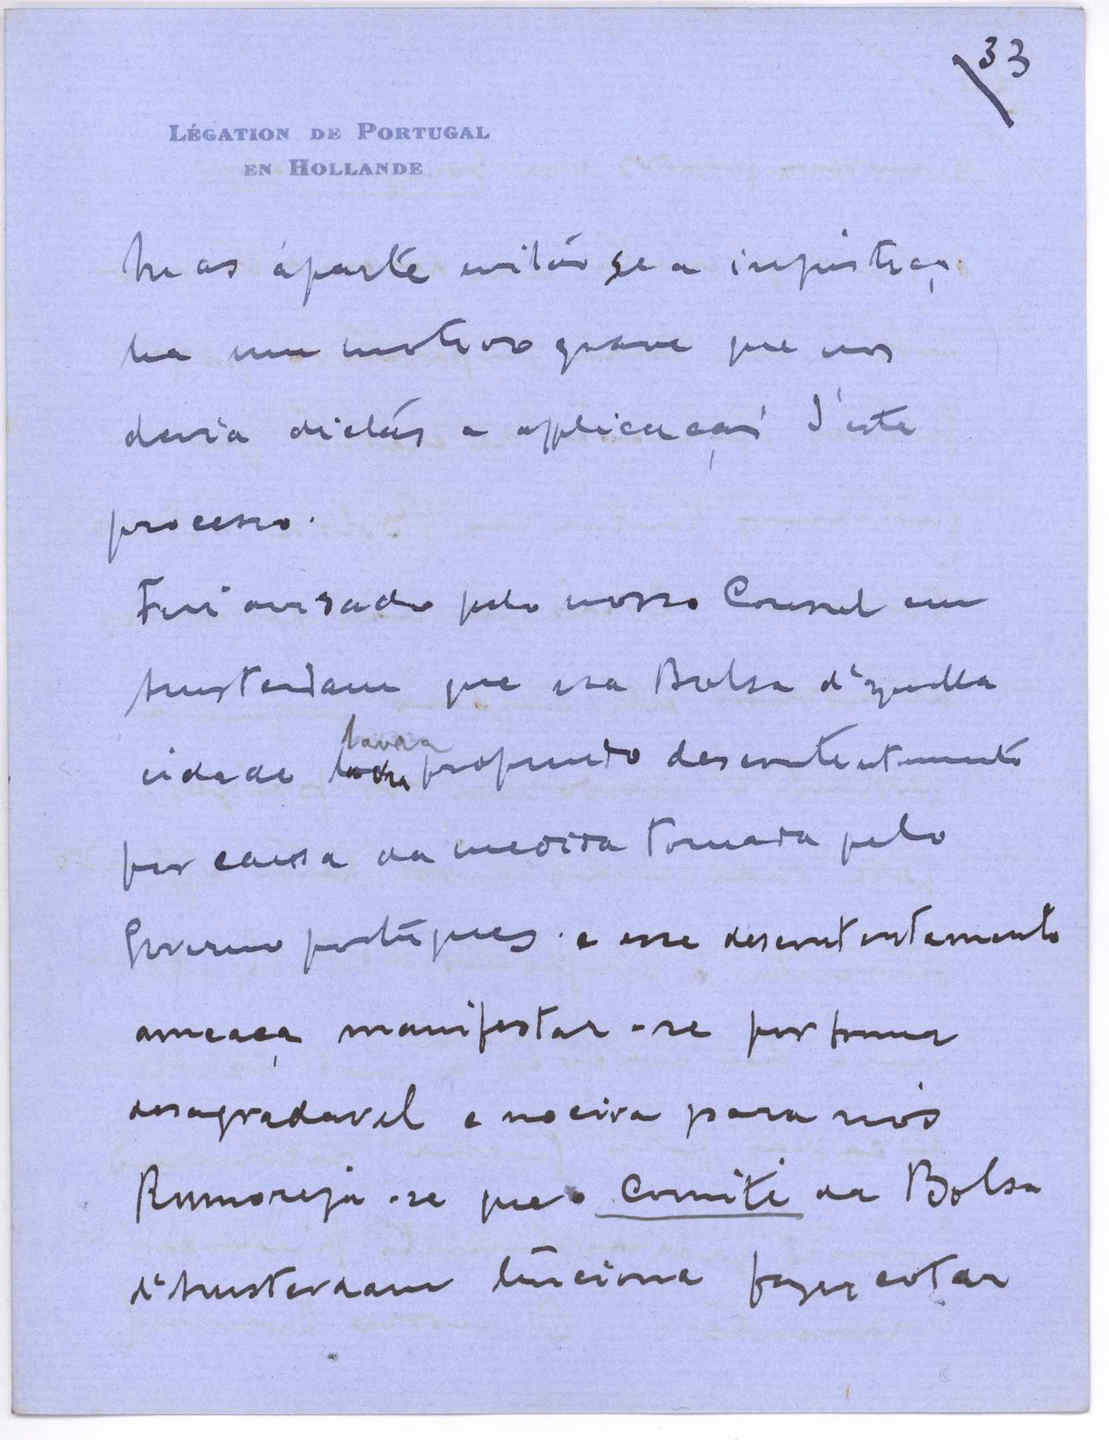 33
LÉGATION DE PORTUGAL
EN HOLLANDE
Mas áparte evitár se a injustiça
ha um motivo grave que nos
devia dictár a applicação d'este
processo.
Fui avisado pelo nosso Consul em
Amsterdam que na Bolsa d'aquella
lavra
cidade lavra profundo descontentamento
por causa da medida tomada pelo
Governo portuguez. e esse descontentamento
ameaça manifestar-se por forma
desagradavel e nociva para nós
Rumoreja-se que o Comité da Bolsa
d'Amsterdam tenciona fazer cotar